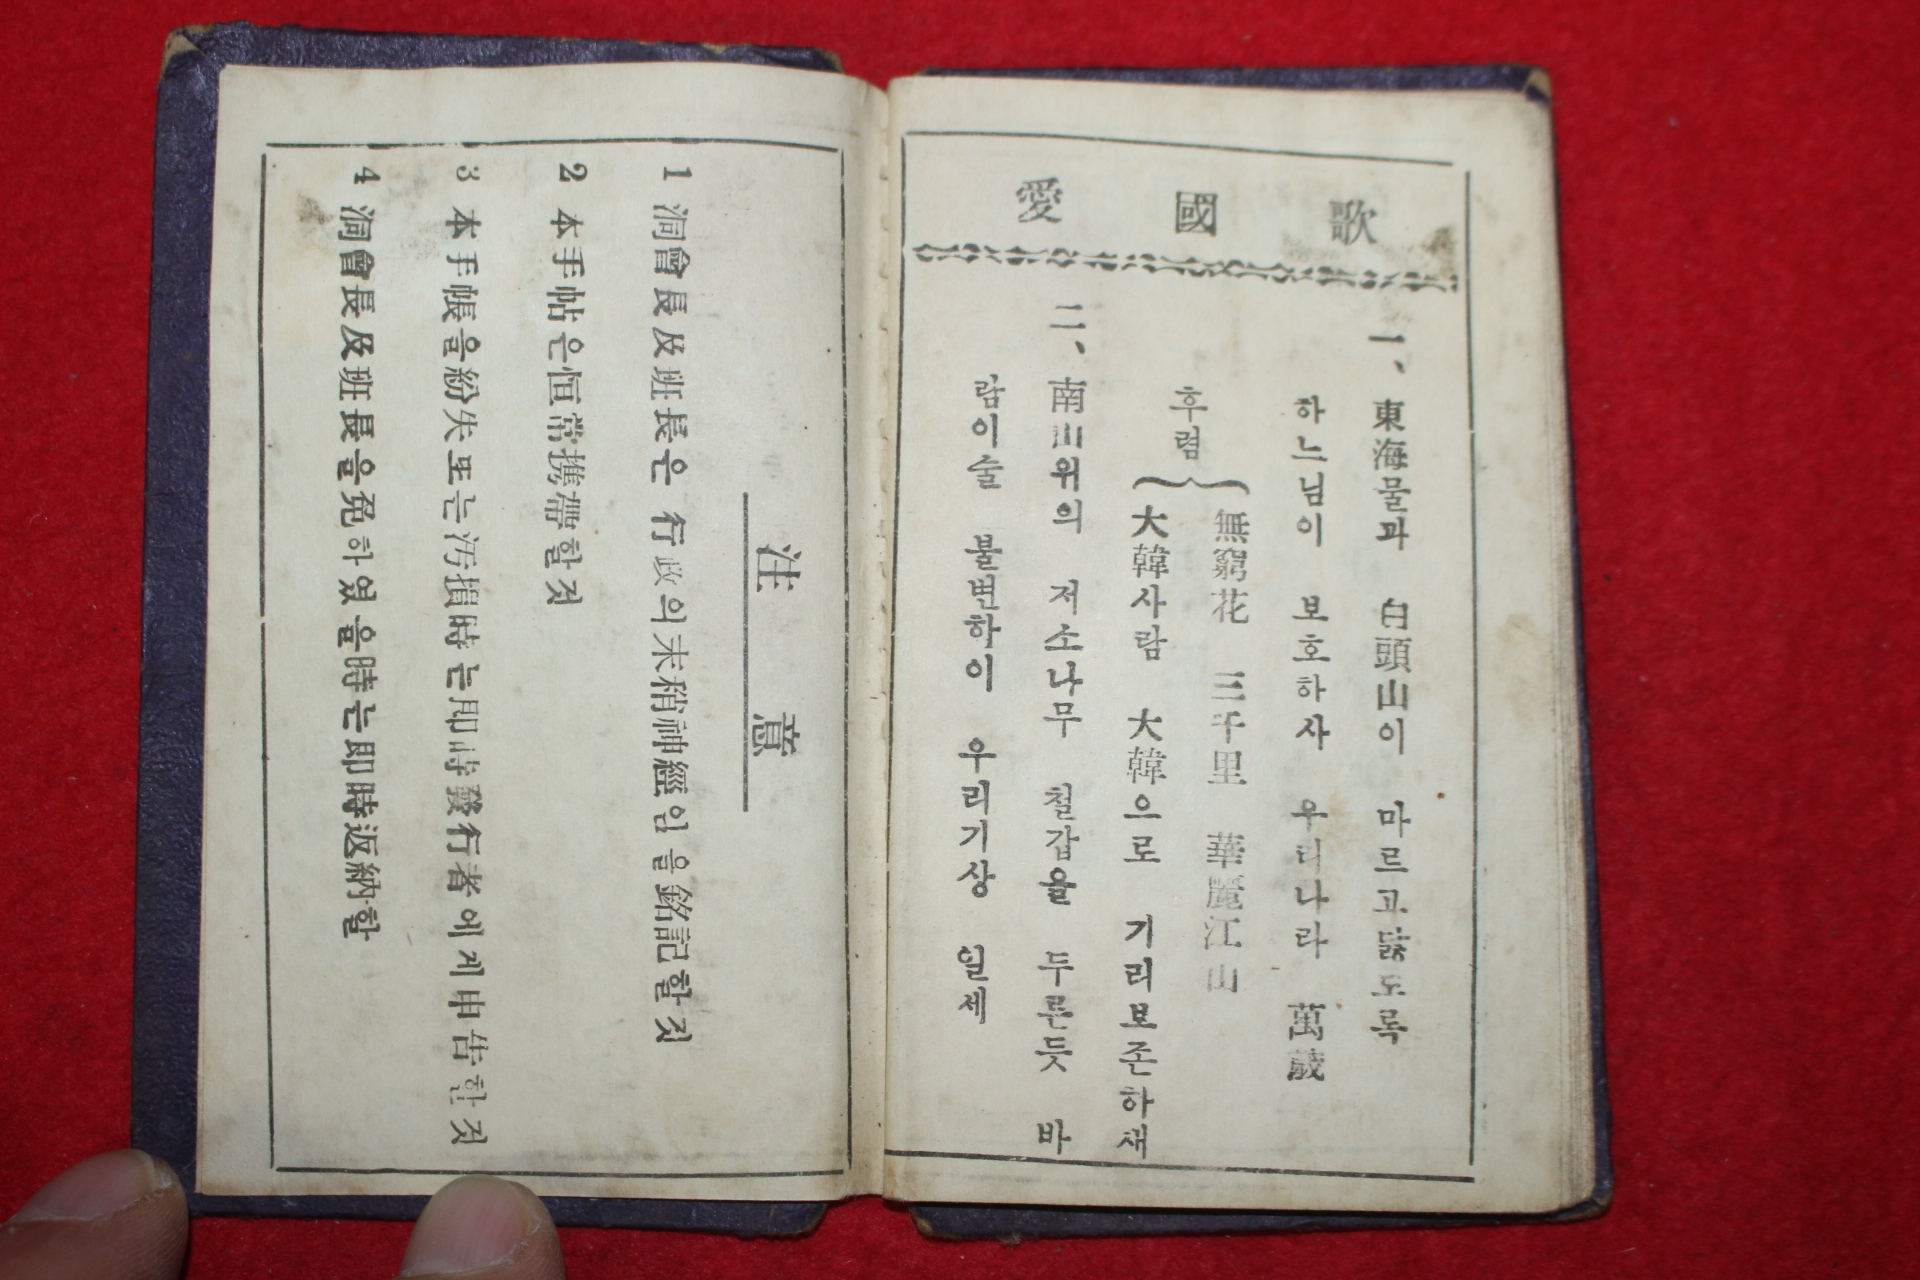 注意
1 洞會長及班長은 行政의末稍神經임을銘記할것
2 本手帖은恒常携帶할것
3 本手帳을紛失또는汚損時는即時發行者에게申告한것
4 洞會長及班長을免하였을時는即時返納할
愛國歌
一、東海물과 白頭山이 마르고닳도록
하느님이 보호하사 우리나라 萬歲
후렴
無窮花 三千里 華麗江山
大韓사람 大韓으로 기리보존하새
二、南山위의 저소나무 철갑을 두른듯 바
람이슬 불변하이 우리기상 일세